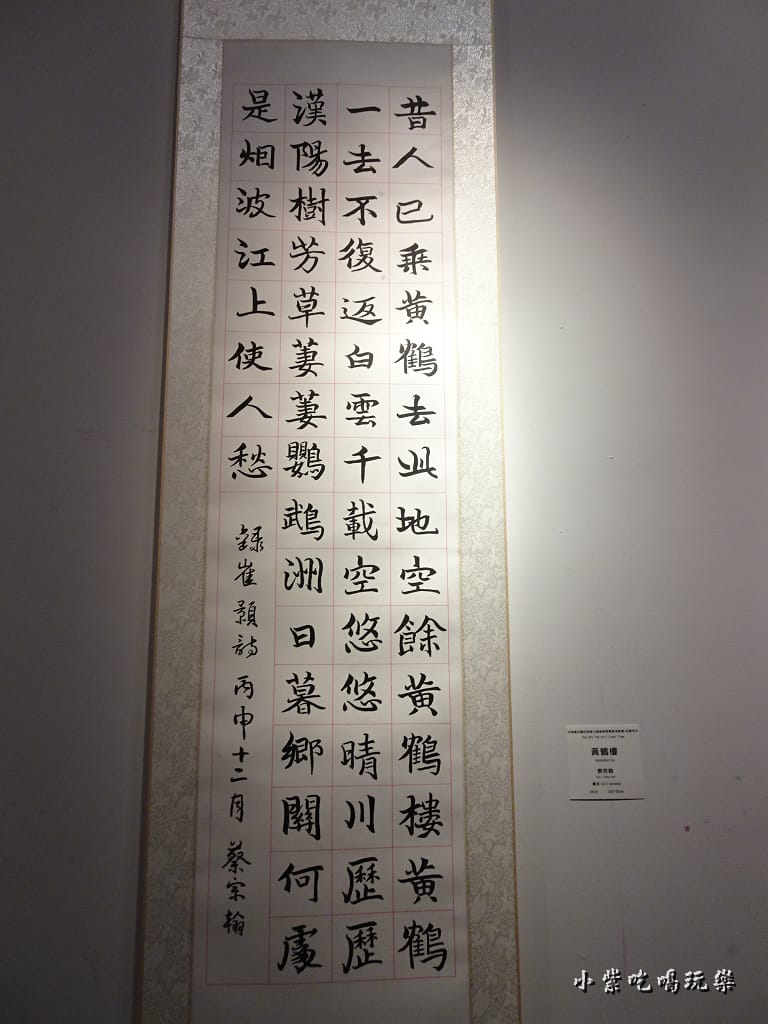 昔人已乗黄鶴去此地空餘黄鶴樓黄鶴
一去不復返白雲千載空悠悠晴川歷歷
漢陽樹芳草萋萋鸚鵡洲日暮鄉關何處
是烟波江上使人愁
錄崔顥詩丙申十二月蔡宗翰
黃鶴樓
蔡宗翰
小紫吃喝玩樂